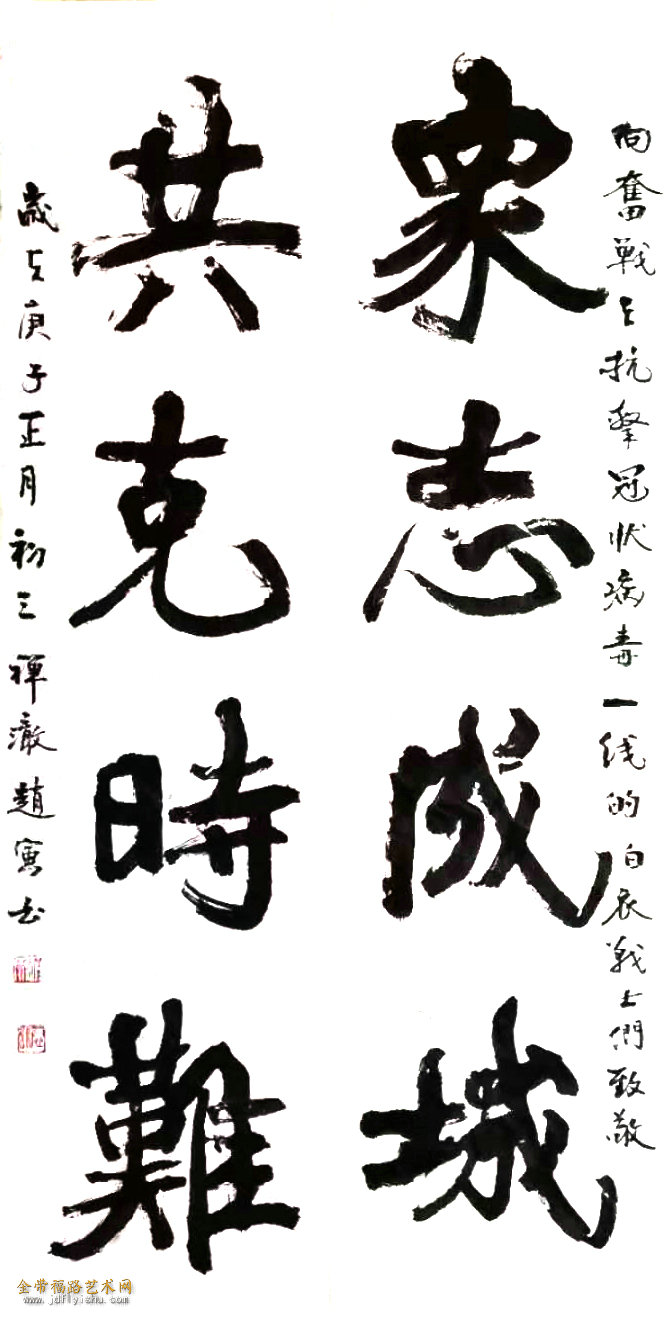 向奮戰在抗擊冠狀病毒一线的白衣戰士們致敬
眾志成城
共克時難
歲在庚子正月初三禪澈趙寅書
金带福路艺术网
www.jdflyishu.com